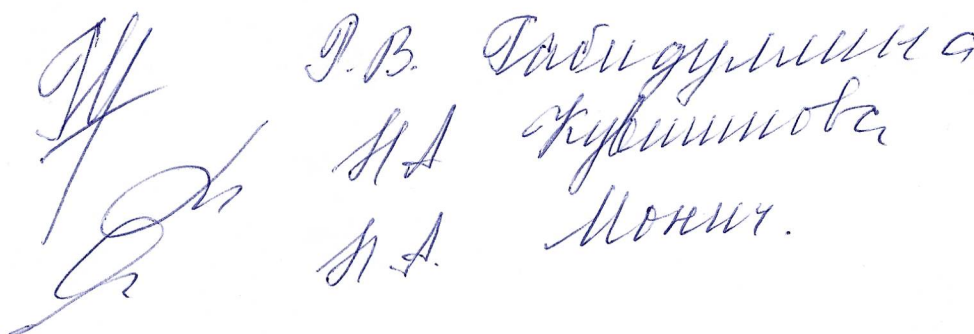 Р.В. Габидуллина
Н А Кувшинова
Н.А. Монич.